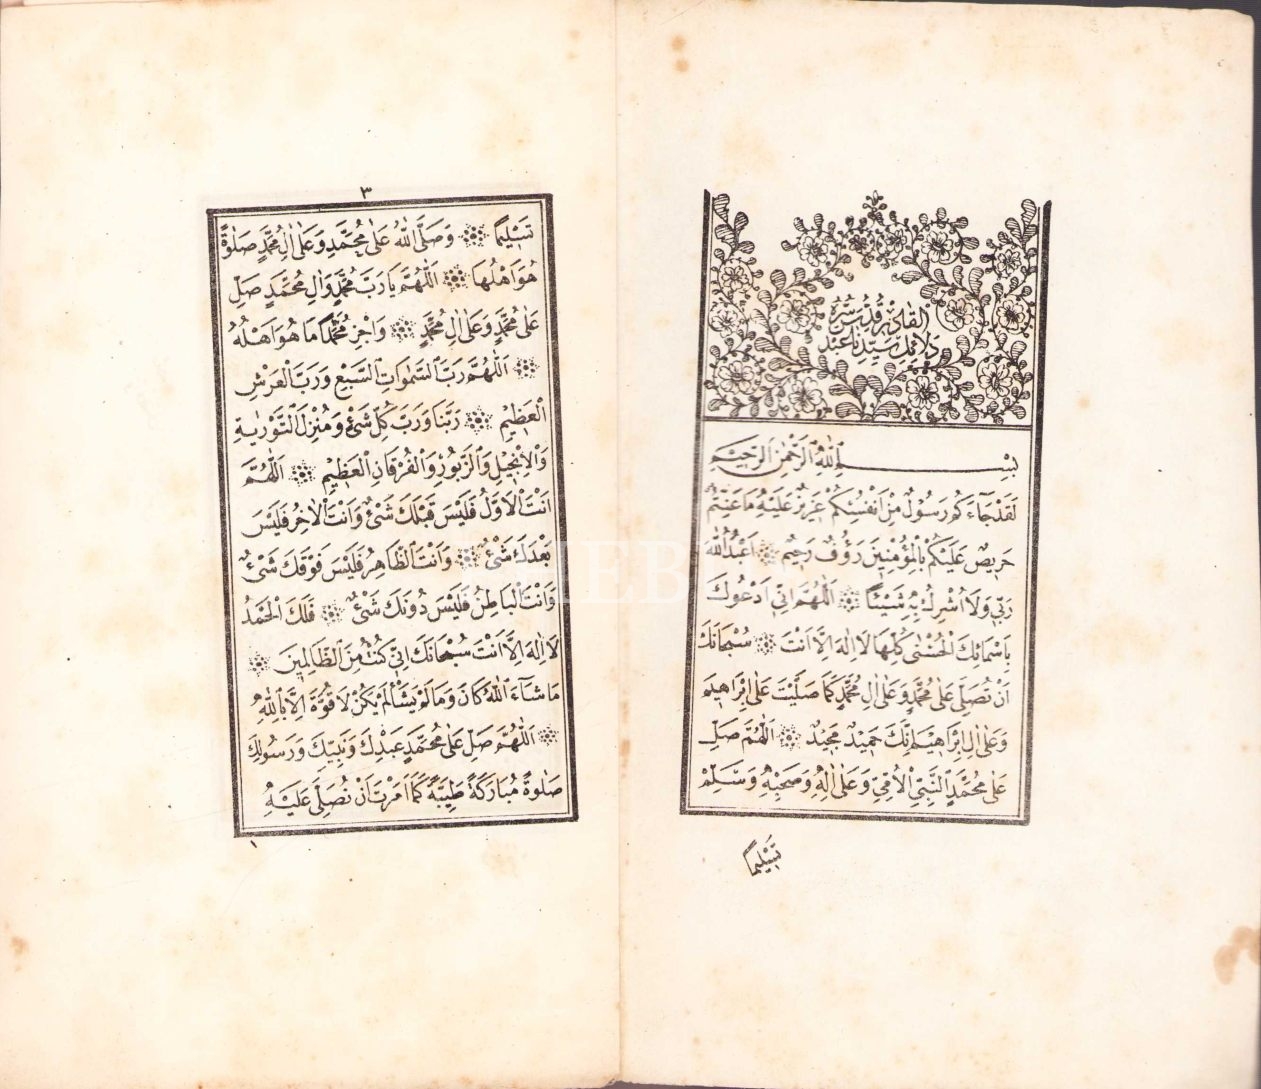 القادر قدس سره
دلائل سيدنا عبد
بِسْمِ اللهِ الرَّحْمٰنِ الرَّحِيمِ
لَقَدْ جَاءَكُمْ رَسُولٌ مِنْ اَنْفُسِكُمْ عَزِيزٌ عَلَيْهِ مَا عَنِتُّمْ
حَرِيصٌ عَلَيْكُمْ بِالْمُؤْمِنِينَ رَؤُفٌ رَحِيمٌ اَعْبُدُ اللهَ
رَبِّي وَلَا اُشْرِكُ بِهِ شَيْئًا اَللّٰهُمَّ اِنِّي اَدْعُوكَ
بِاَسْمَائِكَ الْحُسْنٰى كُلِّهَا لَا اِلٰهَ اِلَّا اَنْتَ سُبْحَانَكَ
اَنْ تُصَلِّيَ عَلٰى مُحَمَّدٍ وَعَلٰى اٰلِ مُحَمَّدٍ كَمَا صَلَّيْتَ عَلٰى اِبْرَاهِيمَ
وَعَلٰى اٰلِ اِبْرَاهِيمَ اِنَّكَ حَمِيدٌ مَجِيدٌ اَللّٰهُمَّ صَلِّ
عَلٰى مُحَمَّدٍ النَّبِيِّ الْاُمِّيِّ وَعَلٰى اٰلِهِ وَصَحْبِهِ وَسَلِّمْ
تَسْلِيمًا
٣
تَسْلِيمًا وَصَلَّى اللهُ عَلٰى مُحَمَّدٍ وَعَلٰى اٰلِ مُحَمَّدٍ صَلٰوةً
هُوَ اَهْلُهَا اَللّٰهُمَّ يَا رَبَّ مُحَمَّدٍ وَاٰلِ مُحَمَّدٍ صَلِّ
عَلٰى مُحَمَّدٍ وَعَلٰى اٰلِ مُحَمَّدٍ وَاجْزِ مُحَمَّدًا مَا هُوَ اَهْلُهُ
اَللّٰهُمَّ رَبَّ السَّمٰوَاتِ السَّبْعِ وَرَبَّ الْعَرْشِ
الْعَظِيمِ رَبَّنَا وَرَبَّ كُلِّ شَيْءٍ وَمُنْزِلَ التَّوْرٰيةِ
وَالْاِنْجِيلِ وَالزَّبُورِ وَالْفُرْقَانِ الْعَظِيمِ اَللّٰهُمَّ
اَنْتَ الْاَوَّلُ فَلَيْسَ قَبْلَكَ شَيْءٌ وَاَنْتَ الْاٰخِرُ فَلَيْسَ
بَعْدَكَ شَيْءٌ وَاَنْتَ الظَّاهِرُ فَلَيْسَ فَوْقَكَ شَيْءٌ
وَاَنْتَ الْبَاطِنُ فَلَيْسَ دُونَكَ شَيْءٌ فَلَكَ الْحَمْدُ
لَا اِلٰهَ اِلَّا اَنْتَ سُبْحَانَكَ اِنِّي كُنْتُ مِنَ الظَّالِمِينَ
مَا شَاءَ اللهُ كَانَ وَمَا لَمْ يَشَأْ لَمْ يَكُنْ لَا قُوَّةَ اِلَّا بِاللهِ
اَللّٰهُمَّ صَلِّ عَلٰى مُحَمَّدٍ عَبْدِكَ وَنَبِيِّكَ وَرَسُولِكَ
صَلٰوةً مُبَارَكَةً طَيِّبَةً كَمَا اَمَرْتَ اَنْ نُصَلِّيَ عَلَيْهِ
١